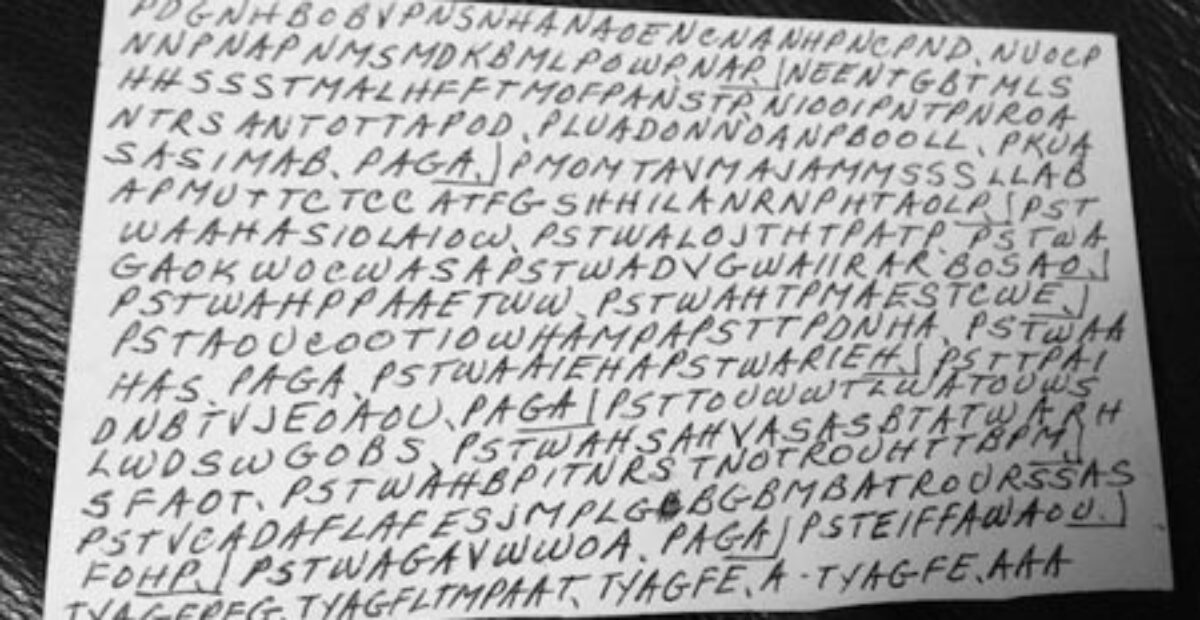 PDGNHBOBVPNSNHANAOENCNANHPNCPND. NUOCP
NNPNAPNMSMDKBMLPOWP, NAP. NEENTGBTMLS
HHSSSTMALHFFTMOFPANSTP, NIOOIPNTPNROA
NTRSANTOTTAPOD. PLUADONNOANPBOOLL, PKUA
SASIMAB. PAGA. PMOMTAVMAJAMMSSSLLAB
APMUTTCTCC ATFGSHHILANRNPHTAOLP. PST
WAAHASIOLAIOW. PSTWALOJTHTPATP. PSTWA
GAOKWOCWASAPSTWADVGWAIIRAR BOSAO.
PSTWAHPPAAETWW. PSTWAHTPMAESTCWE.
PSTAOUCOOTIOWHAMPAPSTTPDNHA. PSTWAA
HAS. PAGA. PSTWAAIEHAPSTWARIEH. PSTTPAI
DNBTVJEOAOU. PAGA PSTTOUWWTLWATOUWS
LWDSWGOBS. PSTWAHSAHVASASBTATWARH
SFAOT. PSTWAHBPITNRSTNOTROUHTTBPM.
PSTVCADAFLAFESJMPLG BGBMBATROURSSAS
FOHP. PSTWAGAVWWOA. PAGA PSTEIFFAWAOU.
TYAGFPFG. TYAGFLTMPAAT. TYAGFE. A-TYAGFE. AAA